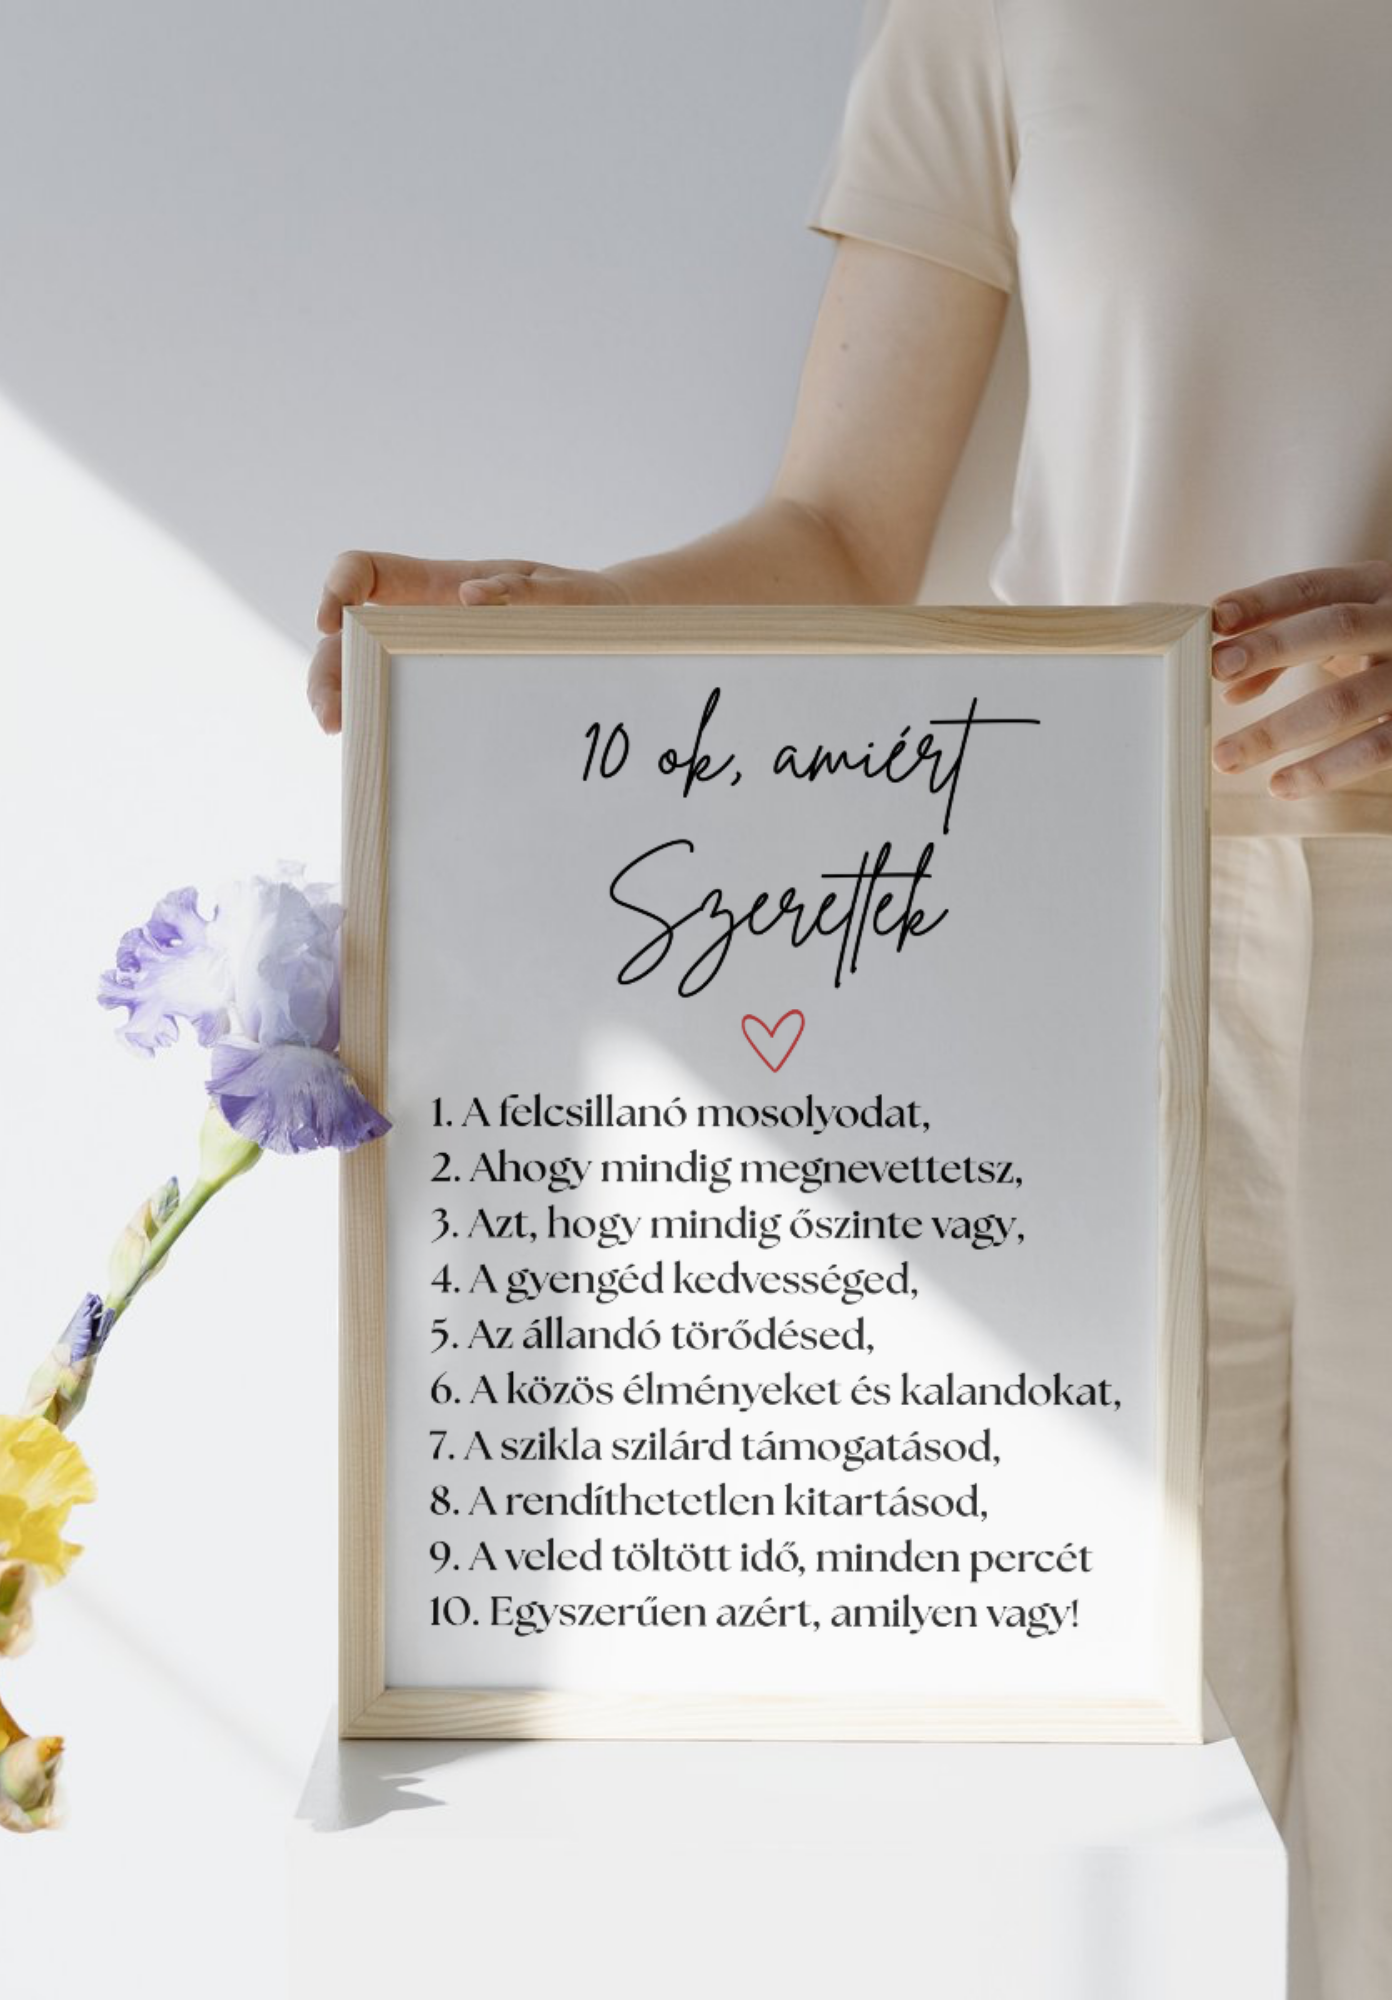 10 ok, amiért
Szeretlek
1. A felcsillanó mosolyodat,
2. Ahogy mindig megnevettetsz,
3. Azt, hogy mindig őszinte vagy,
4. A gyengéd kedvességed,
5. Az állandó törődésed,
6. A közös élményeket és kalandokat,
7. A szikla szilárd támogatásod,
8. A rendíthetetlen kitartásod,
9. A veled töltött idő, minden percét
10. Egyszerűen azért, amilyen vagy!